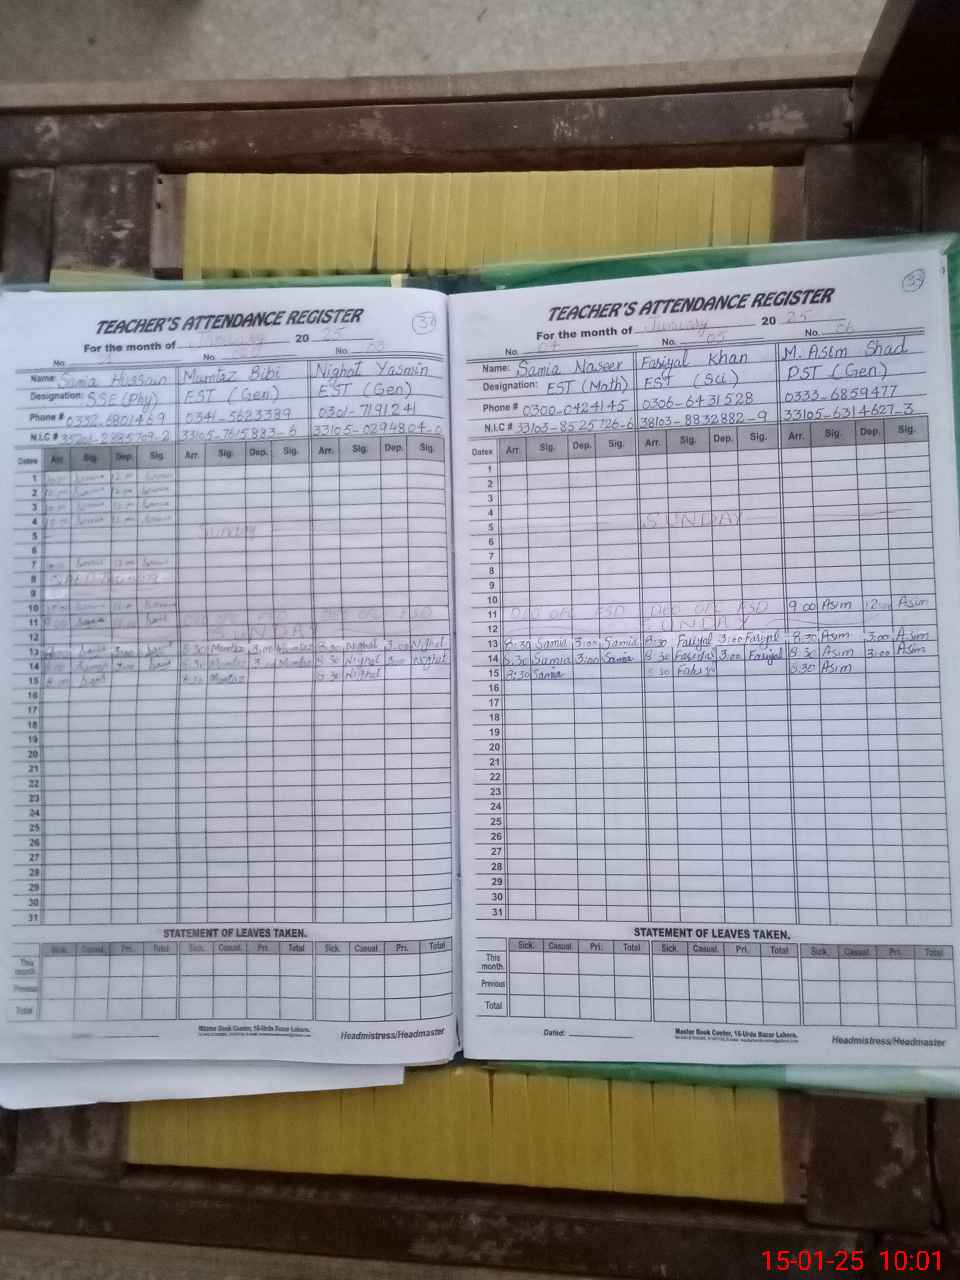 TEACHER'S ATTENDANCE REGISTER
For the month of January 20 25
No. No. No. 03
Name: Samia Hussain Mumtaz Bibi Nighat Yasmin
Designation: SSE (Phy) EST (Gen) EST (Gen)
Phone # 0332-6801469 0341-5623389 0301-7191241
N.I.C # 33105-7615883-6 33105-0294804-0
Dates Arr. Sig. Dep. Sig. Arr. Sig. Dep. Sig. Arr. Sig. Dep. Sig.
1
2
3
4
5 Sunday
6
7
8
9
10
11
12 SUNDAY
13 8:30 Mumtaz 3:00 Mumtaz 8:30 Nighat 3:00 Nighat
14 3:00 8:30 Mumtaz 3:00 Mumtaz 8:30 Nighat 3:00 Nighat
15 8:30 Mumtaz 8:30 Nighat
16
17
18
19
20
21
22
23
24
25
26
27
28
29
30
31
STATEMENT OF LEAVES TAKEN.
Sick. Casual. Pri. Total Sick. Casual. Pri. Total Sick. Casual. Pri. Total
This month
Previous
Total
Master Book Center, 16-Urdu Bazar Lahore.
Headmistress/Headmaster
33
TEACHER'S ATTENDANCE REGISTER
For the month of January 20 25
No. 04 No. 05 No. 06
Name: Samia Naseer Fariyal Khan M. Asim Shad
Designation: EST (Math) EST (Sci) PST (Gen)
Phone # 0300-0424145 0306-6431528 0333-6859477
N.I.C # 33103-8525726-6 38103-8832882-9 33105-6314627-3
Dates Arr. Sig. Dep. Sig. Arr. Sig. Dep. Sig. Arr. Sig. Dep. Sig.
1
2
3
4
5 SUNDAY
6
7
8
9
10 9:00 Asim 12:00 Asim
11 FSD FSD
12 SUNDAY
13 8:30 Samia 3:00 Samia 8:30 Fariyal 3:00 Fariyal 8:30 Asim 3:00 Asim
14 8:30 Samia 3:00 Samia 8:30 Fariyal 3:00 Fariyal 8:30 Asim 3:00 Asim
15 8:30 Samia 8:30 Fariyal 8:30 Asim
16
17
18
19
20
21
22
23
24
25
26
27
28
29
30
31
STATEMENT OF LEAVES TAKEN.
Sick. Casual. Pri. Total Sick. Casual. Pri. Total Sick. Casual. Pri. Total
This month
Previous
Total
Dated:
Master Book Center, 16-Urdu Bazar Lahore.
Headmistress/Headmaster
15-01-25 10:01